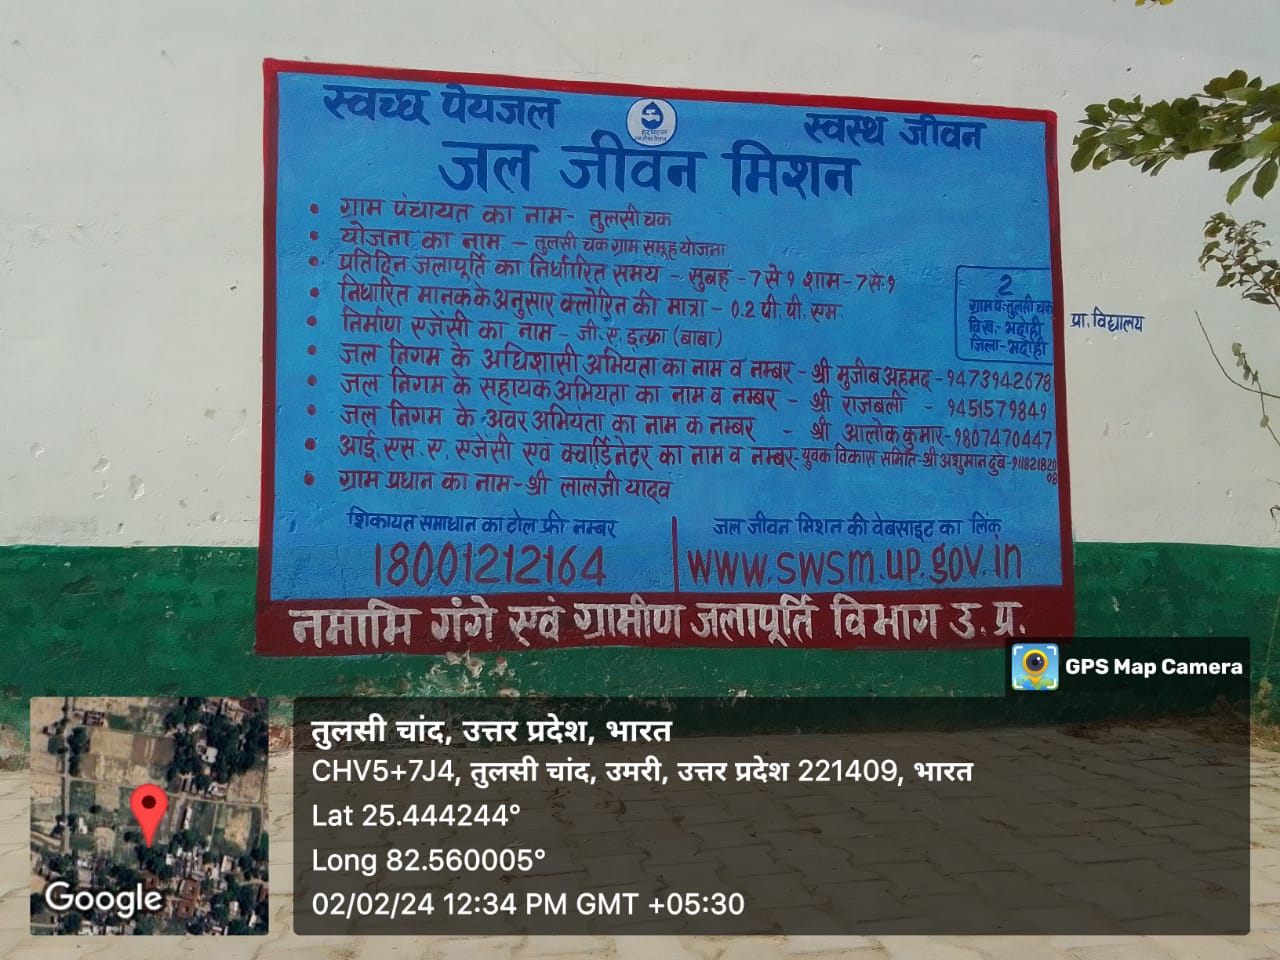 स्वच्छ पेयजल
स्वस्थ जीवन
जल जीवन मिशन
• ग्राम पंचायत का नाम - तुलसी चक
• योजना का नाम - तुलसी चक ग्राम समूह योजना
• प्रतिदिन जलापूर्ति का निर्धारित समय - सुबह - 7 से 9 शाम - 7 से 9
• निर्धारित मानक के अनुसार क्लोरिन की मात्रा - 0.2 पी. पी. एम.
• निर्माण एजेंसी का नाम - जी. ए. इन्फ्रा (बाबा)
• जल निगम के अधिशासी अभियंता का नाम व नम्बर - श्री मुजीब अहमद - 9473942678
• जल निगम के सहायक अभियंता का नाम व नम्बर - श्री राजबली - 9451579849
• जल निगम के अवर अभियंता का नाम क नम्बर - श्री आलोक कुमार - 9807470447
• आई. एस. ए. एजेंसी एवं क्वार्डिनेटर का नाम व नम्बर - युवक विकास समिति - श्री अशुमान दुबे - 9118218208
• ग्राम प्रधान का नाम - श्री लालजी यादव
2
ग्राम पं- तुलसी चक
वि.ख.- भदोही
जिला- भदोही
प्रा. विद्यालय
शिकायत समाधान का टोल फ्री नम्बर
18001212164
जल जीवन मिशन की वेबसाइट का लिंक
www.swsm.up.gov.in
नमामि गंगे एवं ग्रामीण जलापूर्ति विभाग उ. प्र.
GPS Map Camera
तुलसी चांद, उत्तर प्रदेश, भारत
CHV5+7J4, तुलसी चांद, उमरी, उत्तर प्रदेश 221409, भारत
Lat 25.444244°
Long 82.560005°
02/02/24 12:34 PM GMT +05:30
Google